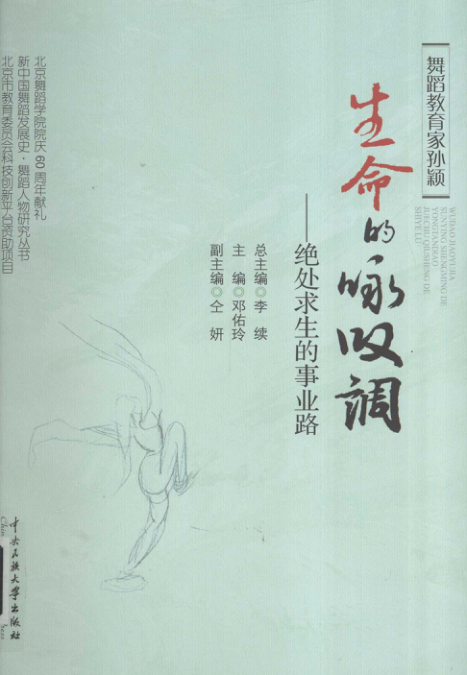 舞蹈教育家孙颖
WUDAO JIAOYUJIA
SUNYING SHENGMING DE
YONGTANDIAO
JUECHU QIUSHENG DE
SHIYE LU
生命的咏叹调
——绝处求生的事业路
总主编◎李 续
主 编◎邓佑玲
副主编◎仝 妍
北京舞蹈学院院庆60周年献礼
新中国舞蹈发展史·舞蹈人物研究丛书
北京市教育委员会科技创新平台资助项目
中央民族大学出版社